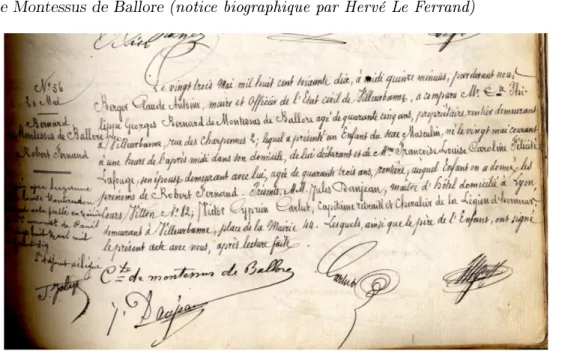 e Montessus de Ballore (notice biographique par Hervé Le Ferrand)
N° 56
20 Mai
Bernard
Montessus de Ballore
Robert Fernand
Le vingt trois Mai mil huit cent soixante dix, à midi quinze minutes, pardevant nous
Berger Claude Antoine, maire et Officier de l'Etat civil de Villeurbanne, a comparu Mr. Cte Phi-
lippe Georges Bernard de Montessus de Ballore agé de quarante cinq ans, propriétaire rentier demeurant
à Villeurbanne, rue des Charpennes 2; lequel a présenté un Enfant du sexe Masculin, né le vingt mai courant
à une heure de l'après midi dans son domicile, de lui déclarant et de Mme Françoise Louise Caroline Félicité
Lafouge, son épouse demeurant avec lui, agée de quarante trois ans, rentière, auquel Enfant on a donné les
prénoms de Robert Fernand. Présents, M.M. Jules Danjean, maître d'hôtel domicilié à Lyon,
Cours Vitton N° 82, Victor Cyprien Carlut, capitaine retraité et Chevalier de la Légion d'honneur,
demeurant à Villeurbanne, place de la Mairie 44. Lesquels, ainsi que le père de l'Enfant, ont signé
le présent acte avec nous, après lecture faite.
Cte de montessus de Ballore
J. Danjean
Carlut